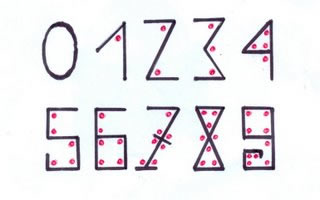 01234
56789